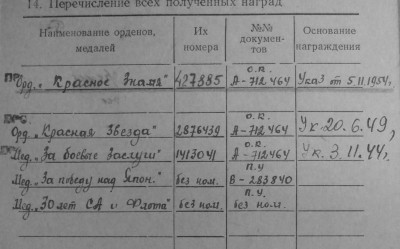 14. Перечисление всех полученных наград
Наименование орденов, медалей
Их номера
№№ документов
Основание награждения
Орд. „Красное Знамя" 427885 О.К. А-712464 Указ от 5.11.1954г.
Орд. „Красная Звезда" 2876439 О.К. А-712464 Ук. 20.6.49г.
Мед. „За боевые заслуги" 1413041 О.К. А-712464 Ук. 3.11.44г.
Мед. „За победу над Япон." без ном. П.У. В-283840
Мед. „30 лет СА и Флота" без ном. П.У. без ном.